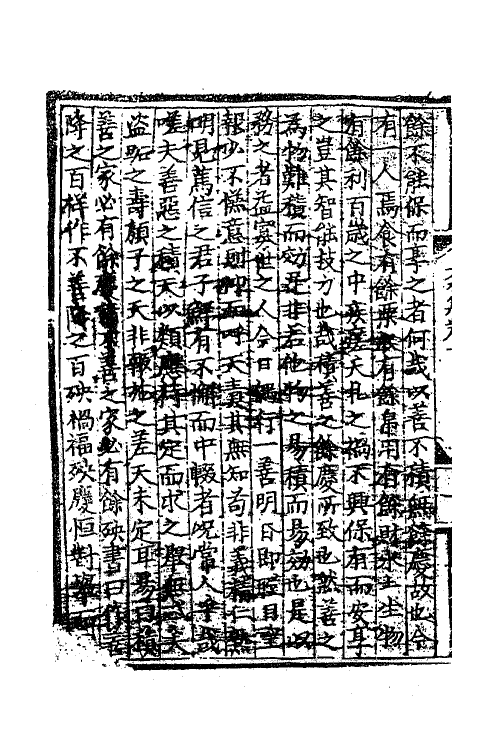 餘不能保而享之者何哉以善不積無餘慶故也今
有一人焉食有餘粟衣有餘帛用有餘財水土生物
有餘利百歲之中疾夭札之禍不興保有而安享
之豈其智能技力也哉積善之餘慶所致也然善之
為物難積而効遲非若他物之易積而易効也是以
務之者益寡世之人今日行一善明日即瞪目望
報少不愜意則呼天責其無知苟非義精仁熟
明見篤信之君子鮮有不懈而中輟者況常人乎哉
嗟夫善惡之積天以類應特其定而求之無天
盜跖之壽顏子之夭非報施之差天未定耳易曰積
善之家必有餘慶積不善之家必有餘殃書曰作善
降之百祥作不善降之百殃禍福殃慶恒對